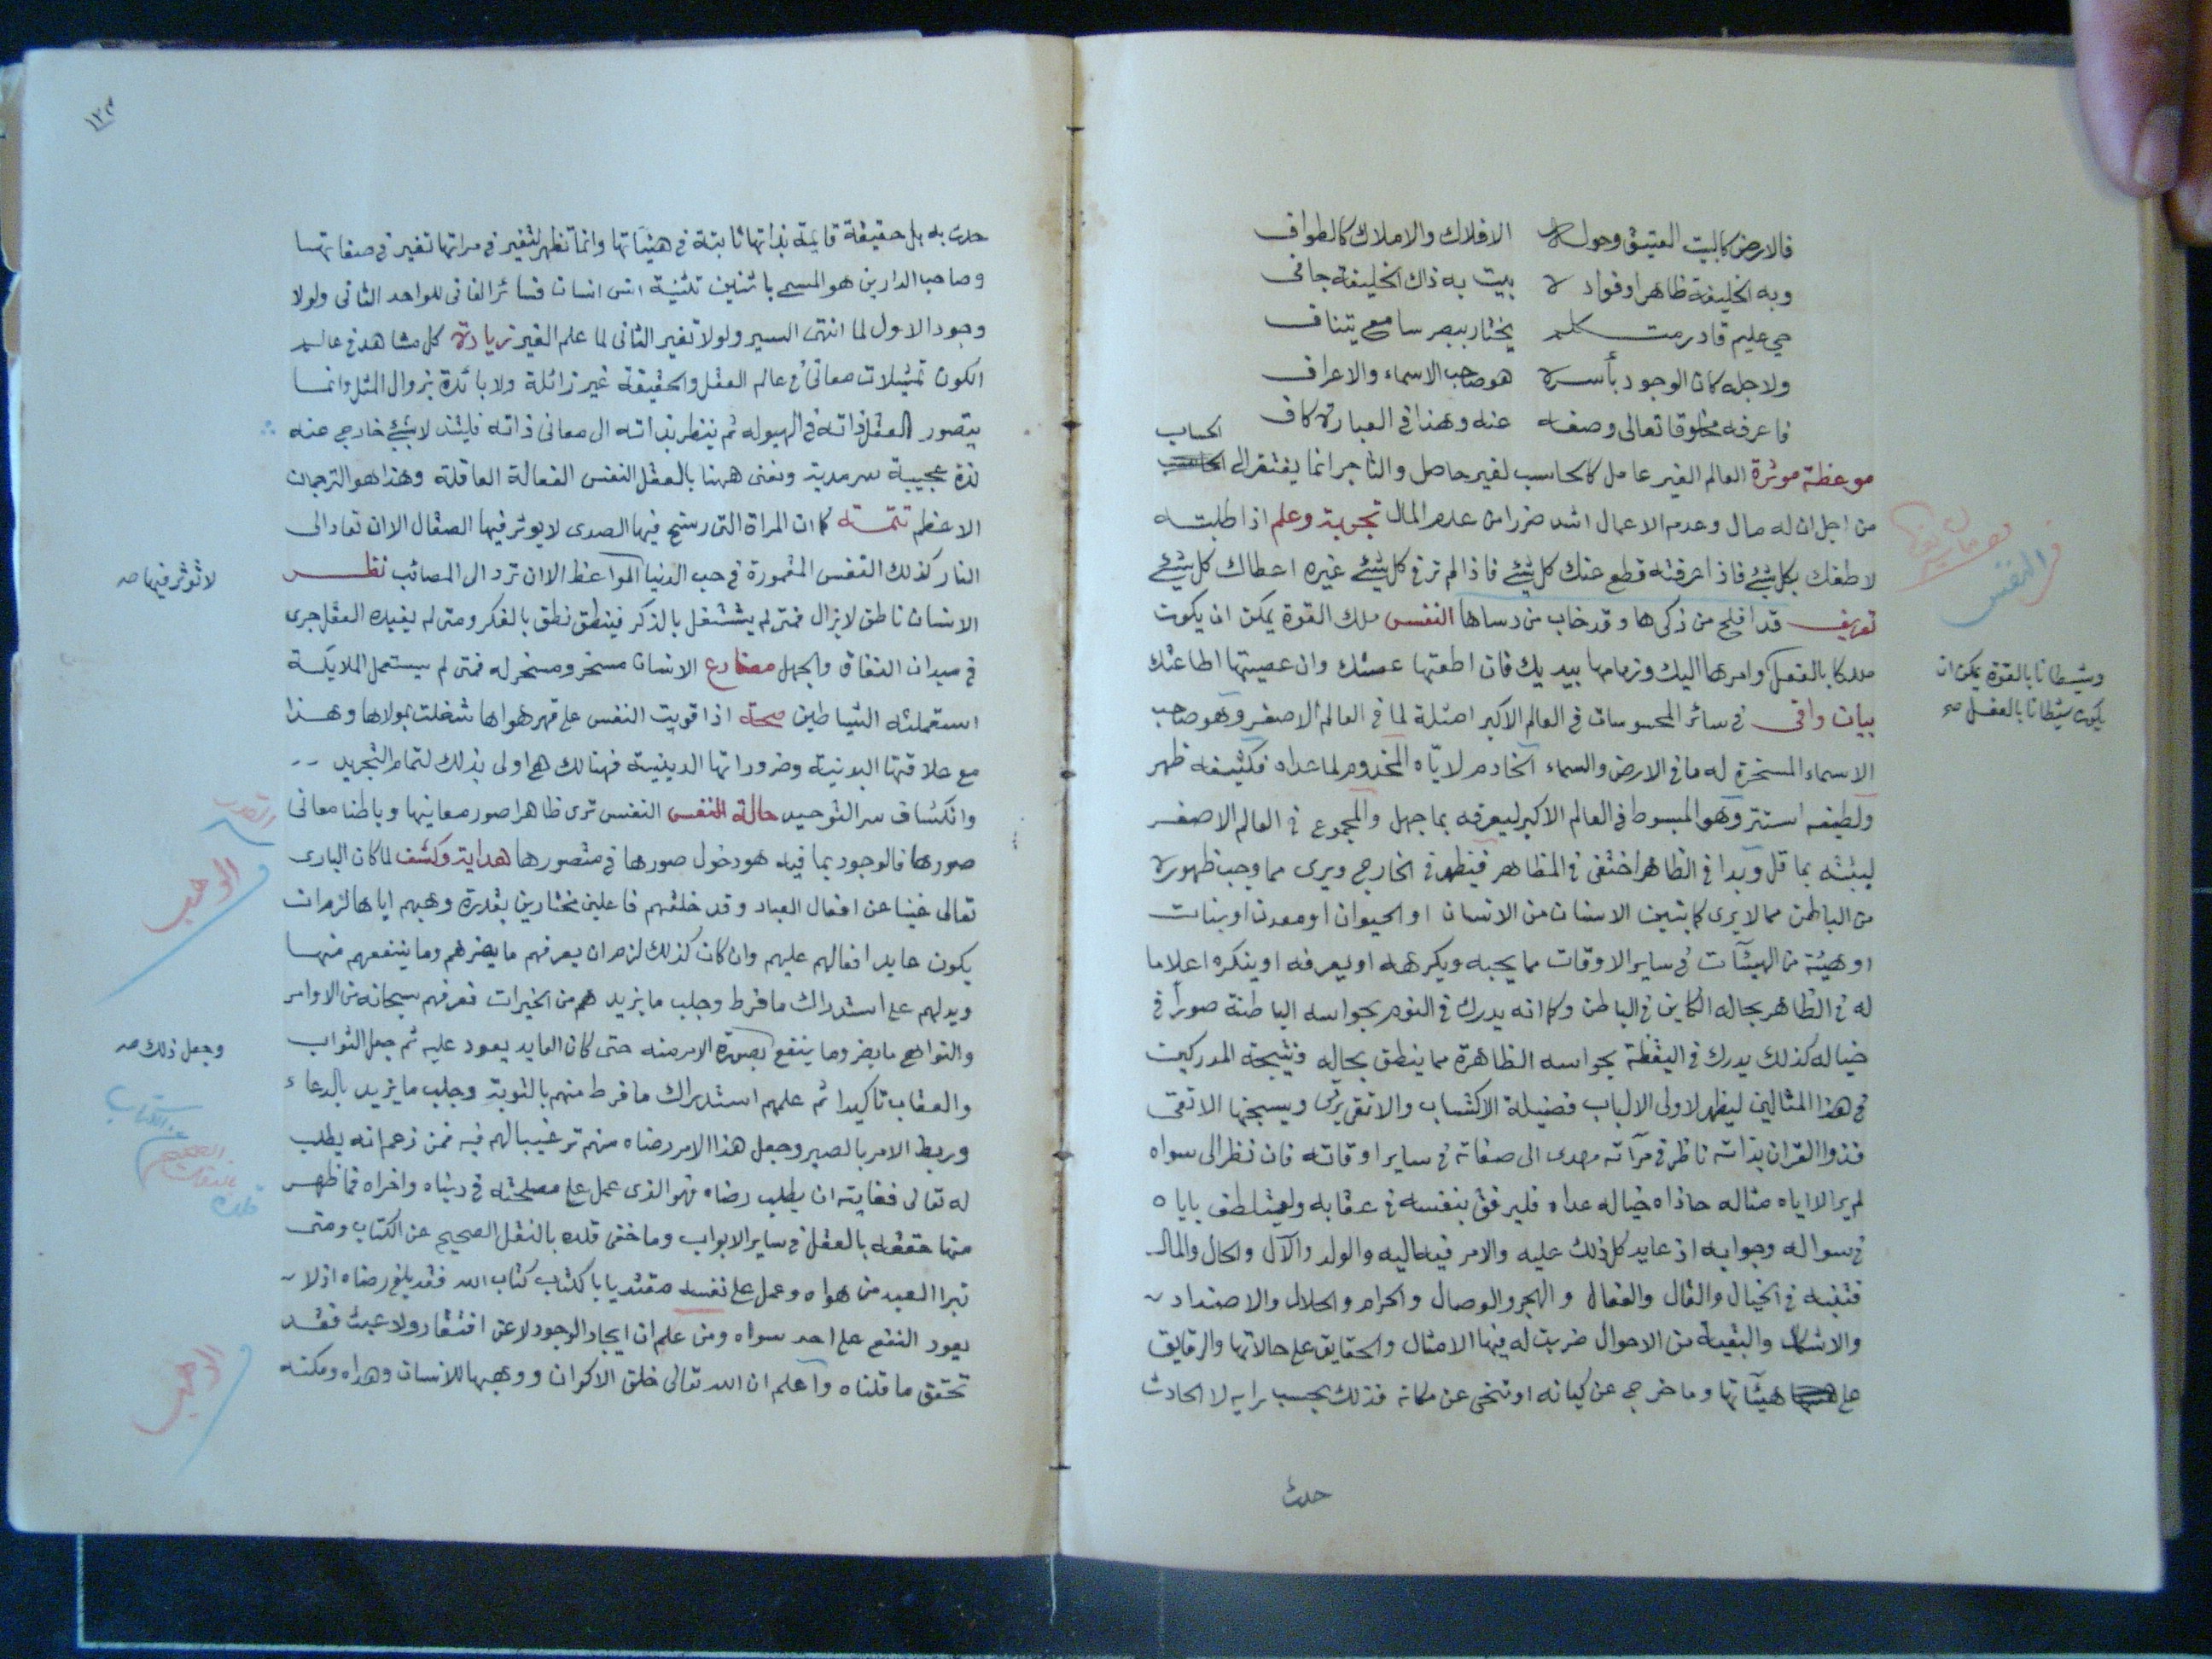 فالارض كالبيت العتيق وحوله الافلاك والاملاك كالطواف
وبه الخليفة ظاهرا وفواده بيت به ذاك الخليفة جافى
حي عليم قادر متكلم يختار يبصر سامع يتناف
ولاجله كان الوجود بأسره هو صاحب الاسماء والاعراف
فاعرفه مخلوقا تعالى وصفه عنه وهذا فى العبارة كاف
موعظة موثرة العالم الغير عامل كالحاسب لغير حاصل والتاجر انما يفتقر الى الحساب
من اجل ان له مال وعدم الاعمال اشد ضررا من عدم المال تجربة وعلم اذا طلبته
لاطفك بكل شيئ فاذا عرفته قطع عنك كل شيئ فاذا لم تر فى كل شيئ غيره اعطاك كل شيئ
تعريف قد افلح من زكى ها وقد خاب من دساها النفس ملك القوة يمكن ان يكون
ملكا بالفعل وامرها اليك وزمامها بيديك فان اطعتها عصتك وان عصيتها اطاعتك
وشيطانا بالقوة يمكن ان
يكون شيطانا بالفعل صح
بيان وافى فى سائر المحسوسات فى العالم الاكبر امثلة لما فى العالم الاصغر وهو صاحب
الاسماء المسخرة له ما فى الارض والسماء الخادم لاياه المخدوم لما عداه فكثيفه ظهر
ولطيفه استتر وهو المبسوط فى العالم الاكبر ليعرفه بما جهل والمجموع فى العالم الاصغر
لينبئه بما قل وبدا فى الظاهر اختفى فى المظاهر فينظر فى الخارج ويرى مما وجب ظهوره
من الباطن مما لا يرى كما يتبين الانسان من الانسان او الحيوان او معدن او بنات
او هيئة من الهيئآت فى ساير الاوقات مما يحبه ويكرهه او يعرفه او ينكره اعلاما
له فى الظاهر بحاله الكاين فى الباطن وكما انه يدرك فى النوم بحواسه الباطنة صوراً فى
خياله كذلك يدرك فى اليقظة بحواسه الظاهرة مما ينطق بحاله فنتيجة المدركين
فى هذا المثالين ليظهر لاولى الالباب فضيلة الاكتساب والاتقى يرقى ويسبحنها الاتقى
فذوا القران بذاته ناظر فى مرآته مهدى الى صفاته فى ساير اوقاته فان نظر الى سواه
لم ير الا اياه مثاله حاذاه خياله عداه فليرفق بنفسه فى عقابه وليتلطف باياه
فى سواله وجوابه اذ عايد كل ذلك عليه والامر فيه اليه والولد والآل والحال والمال
فتنبه فى الخيال والقال والفعال والهجر والوصال والحرام والحلال والاضداد
والاشكال والبقية من الاحوال ضربت له فيها الامثال والحقايق على حالاتها والرقايق
على هيئآتها وما خرج عن كيانه او تنحى عن مكانه فذلك بحسب رايه لا الحادث
حدث
١٢٣
حدث به بل حقيقة قايمة بذاتها ثابتة فى هيئاتها وانما تظهر لتغير فى مراتها تغير فى صفاتها
وصاحب الدارين هو المسمى باثنين تثنية انس انسان فسائر الفانى للواحد الثانى ولولا
وجود الاول لما انتهى السير ولولا تغير الثانى لما علم الغير زيادة كل مشاهد فى عالم
الكون تمثيلات معانى فى عالم العقل والحقيقة غير زائلة ولا بائدة بزوال المثل وانما
يتصور العقل ذاته فى الهيوله ثم ينظر بذاته الى معانى ذاته فيلتذ لا بشيئ خارج عنه
لذة عجيبة سرمدية ونعنى ههنا بالعقل النفس الفعالة العاقلة وهذا هو الترجمان
الاعظم تتمة كما ان المراة التى رسخ فيها الصدى لا يوثر فيها الصقال الا ان تعاد الى
النار كذلك النفس المغمورة فى حب الدنيا المواعظ الا ان ترد الى المصائب نظر
لا تؤثر فيها صح
الانسان ناطق لا يزال فمتى لم يشتغل بالذكر فينطق نطق بالفكر ومتى لم يقيده العقل جرى
فى ميدان النفاق والجهل مضارع الانسان مسخر ومسخر له فمتى لم يستعمل الملايكة
استعملته الشياطين صحة اذا قويت النفس على قهر هواها شغلت بمولاها وهذا
مع علاقتها البدنية وضروراتها الدينية فهنالك هى اولى بذلك لتمام التجريد
وانكشاف سر التوحيد حالة النفس النفس ترى ظاهرا صور معانيها وباطنا معانى
صورها فالوجود بما فيه هو دخول صورها فى متصورها هداية وكشف لما كان البارى
تعالى غنيا عن افعال العباد وقد خلقهم فاعلين مختارين بقدرة وهبهم اياها لزم ان
يكون عايد افعالهم عليهم وان كان كذلك لزم ان يعرفهم ما يضرهم وما ينفعهم منها
ويدلهم على استدراك ما فرط وجلب ما يزيدهم من الخيرات فعرفهم سبحانه من الاوامر
والنواهى ما يضر وما ينفع بصورة الامر منه حتى كان العايد يعود عليه ثم جعل الثواب
وجعل ذلك صح
والعقاب تاكيدا ثم علمهم استدراك ما فرط منهم بالتوبة وجلب ما يزيد بالدعاء
وربط الامر بالصبر وجعل هذا الامر رضاه منهم ترغيبا لهم فيه فمن زعم انه يطلب
له تعالى فغايته ان يطلب رضاه فهو الذى عمل على مصلحته فى دنياه واخراه فما ظهر
منها حققه بالعقل فى ساير الابواب وما خفى قلده بالنقل الصحيح عن الكتاب ومتى
تبرا العبد من هواه وعمل على نفسه مقتديا با كتاب كتاب الله فقد بلغ رضاه اذ لا
يعود النفع على احد سواه ومن علم ان ايجاد الوجود لا عن افتقار ولا عبث فقد
تحقق ما قلناه وآعلم ان الله تعالى خلق الاكوان ووهبها للانسان وهداه ومكنه